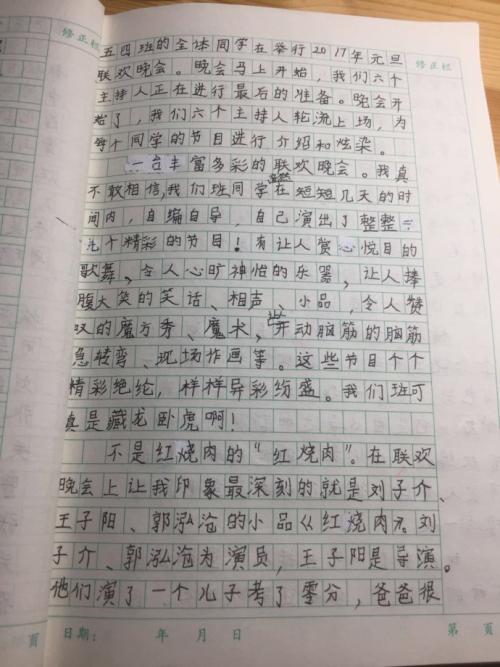 修正栏
修正栏
五四班的全体同学在举行2017年元旦
联欢晚会。晚会马上开始，我们六个
主持人正在进行最后的准备。晚会开
始了，我们六个主持人轮流上场，为
每个同学的节目进行介绍和炫染。
一台丰富多彩的联欢晚会。我真
不敢相信，我们班同学在短短几天的时
间内，自编自导，自己演出了整整二
九个精彩的节目！有让人赏心悦目的
歌舞、令人心旷神怡的乐器，让人捧
腹大笑的笑话、相声、小品，令人赞
叹的魔方秀、魔术，开动脑筋的脑筋
急转弯、现场作画等。这些节目个个
精彩绝纶，样样异彩纷盛。我们班可
真是藏龙卧虎啊！
不是红烧肉的“红烧肉”。在联欢
晚会上让我印象最深刻的就是刘子介、
王子阳、郭泓沧的小品《红烧肉》。刘
子介、郭泓沧为演员，王子阳是导演。
他们演了一个儿子考了零分，爸爸很
页 日期： 年 月 日 第 页